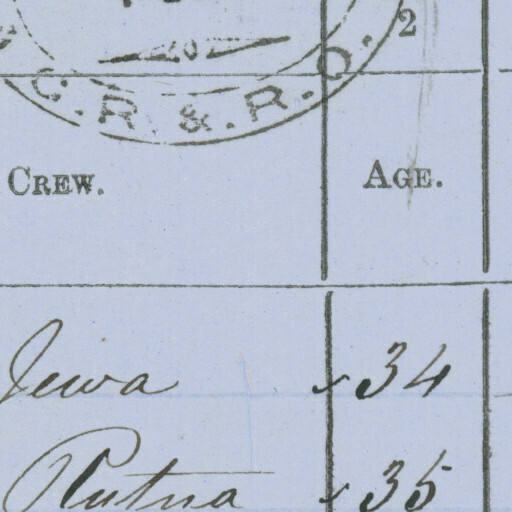 20
2
C. R. & R. O.
CREW. AGE.
Jewa 34
Rutna 35